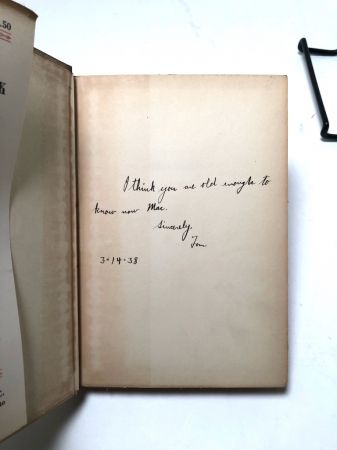 .50
I think you are old enough to
know now Mac.
Sincerely,
Tom
3-14-38